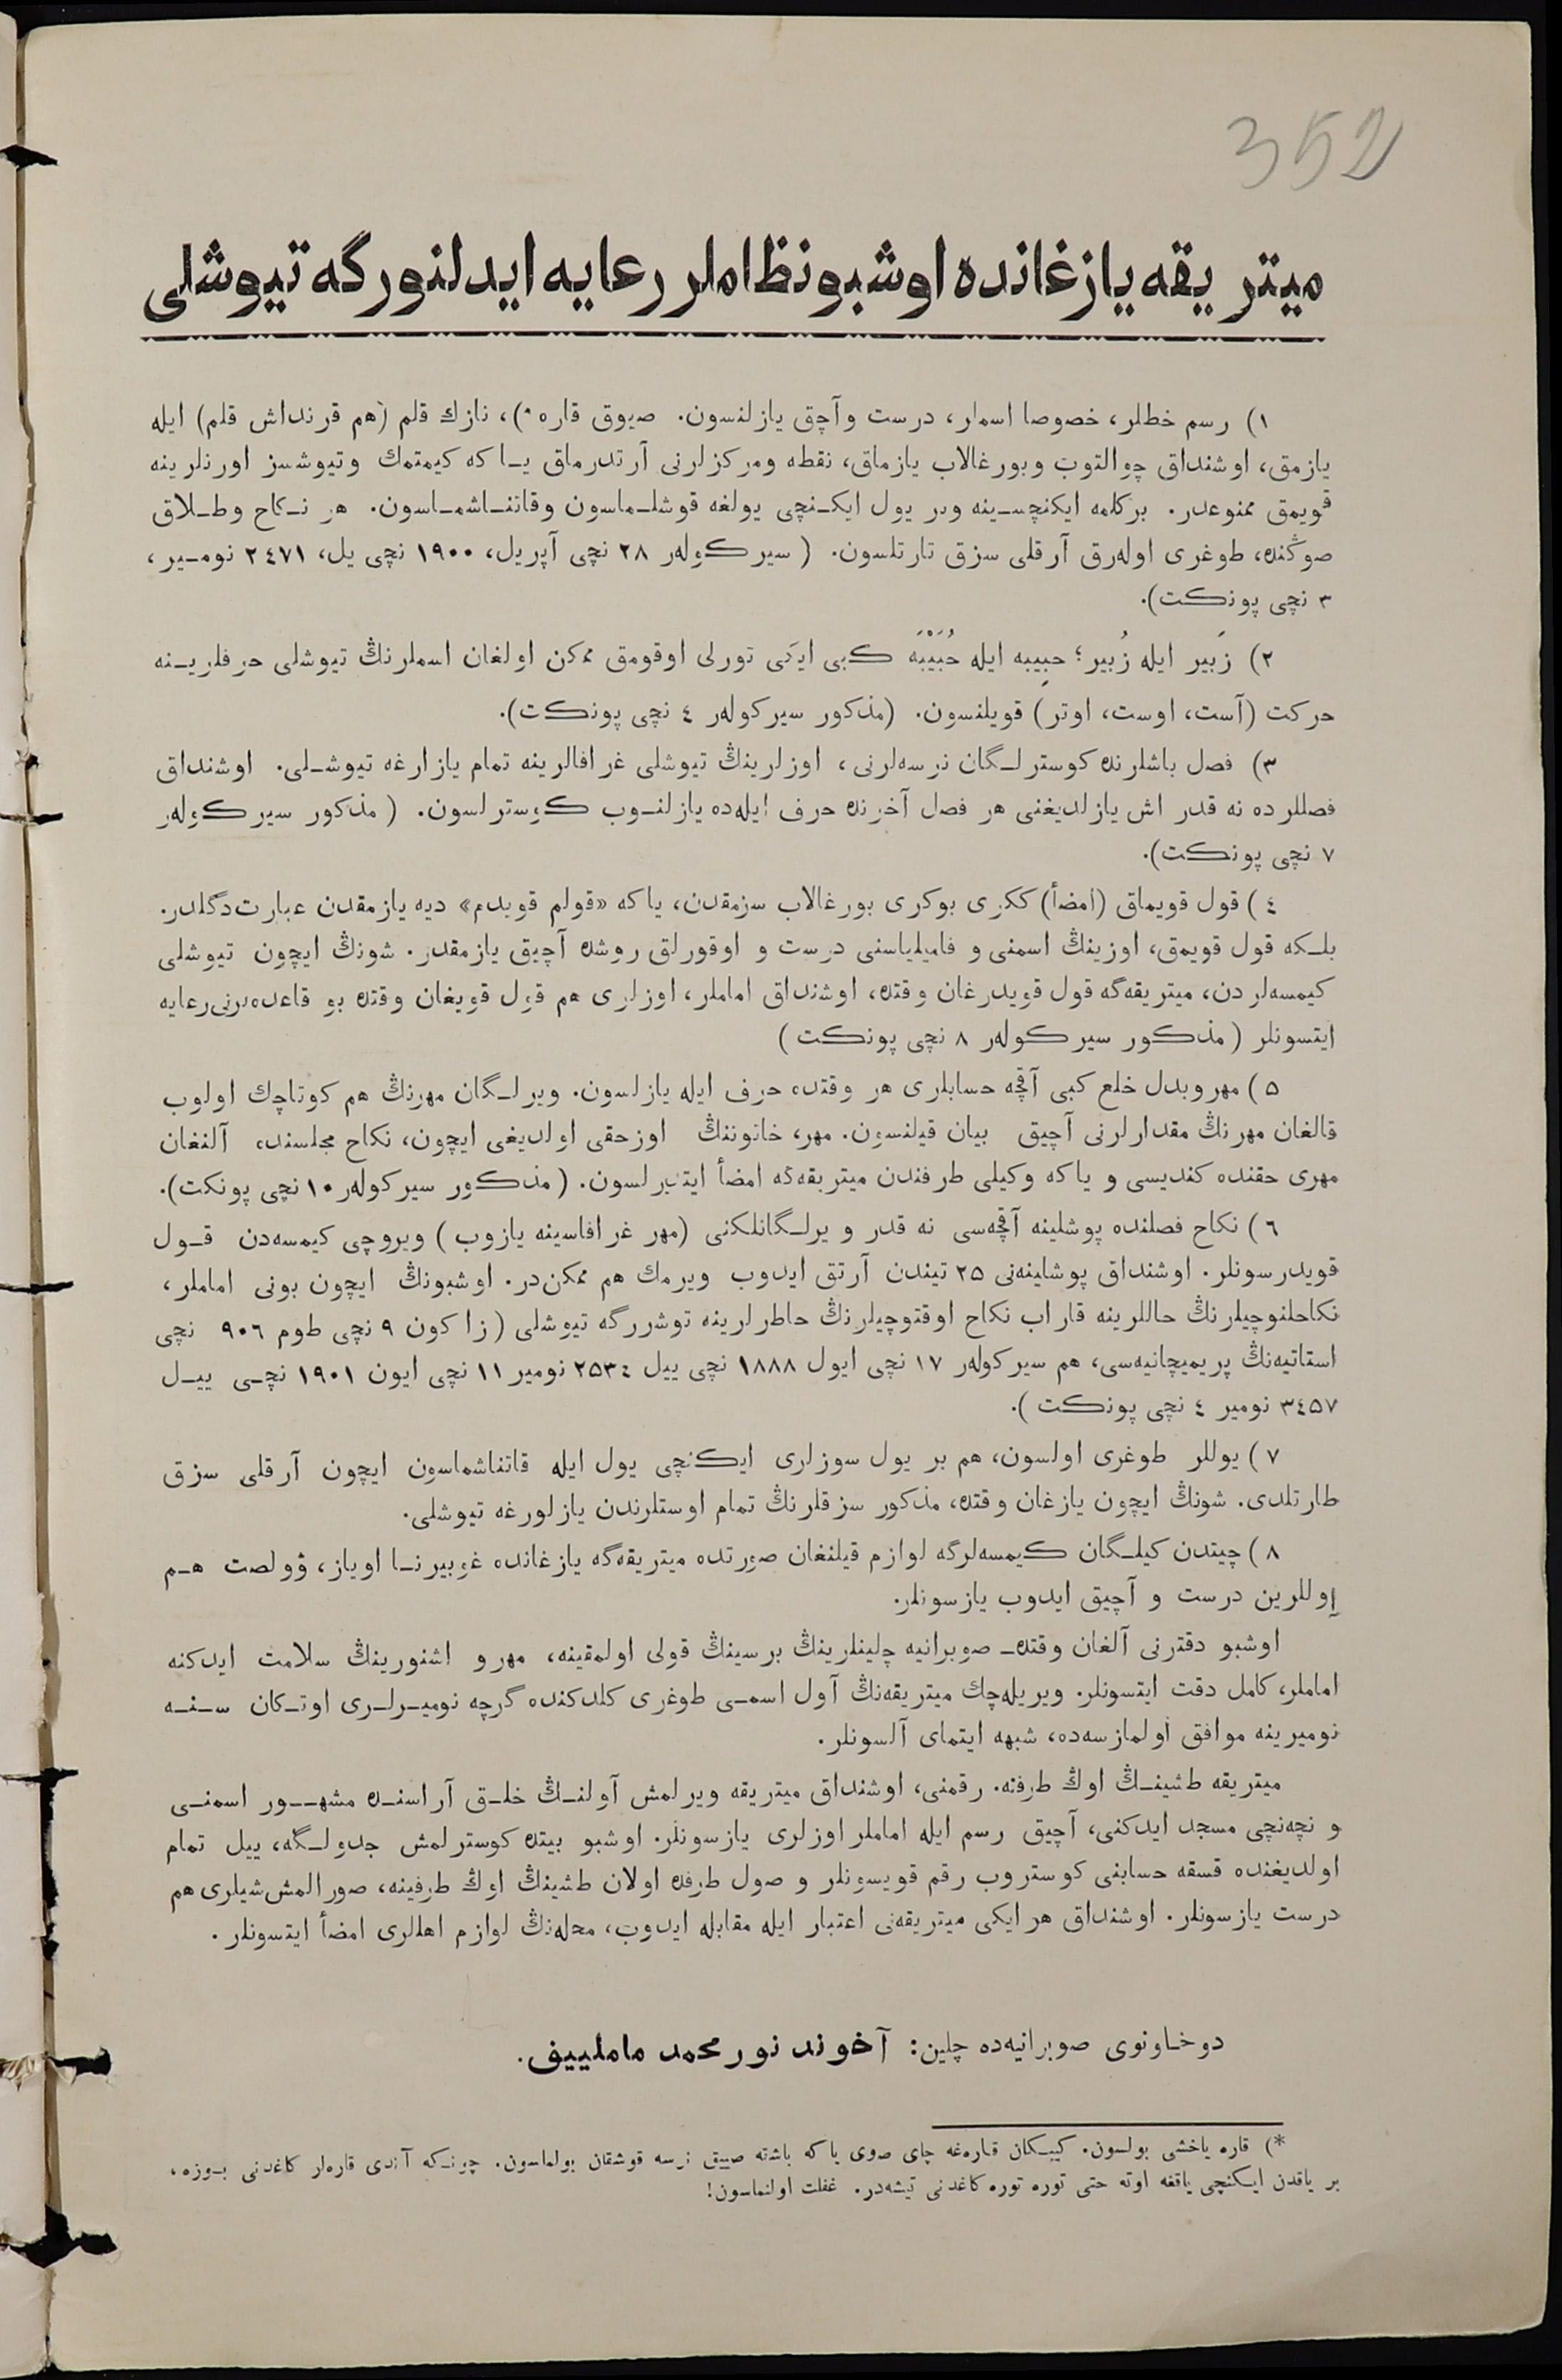 352
ميتريقه يازغانده اوشبو نظاملر رعايه ايدلنورگه تيوشلى
١) رسم خطلر، خصوصا اسملر، درست وآچق يازلنسون. صيوق قاره *)، نازك قلم (هم قرنداش قلم) ايله
يازمق، اوشنداق چوالتوب وبورغالاب يازماق، نقطه ومركزلرنى آرتدرماق يـاكه كيمتمك وتيوشسز اورنلرينه
قويمق ممنوعدر. بركلمه ايكنچسـينه وبر يول ايكـنچى يولغه قوشلـماسون وقاتنـاشمـاسون. هر نـكاح وطـلاق
صوڭنده، طوغرى اولەرق آرقلى سزق تارتلسون. (سيركولەر ٢٨ نچى آپريل، ١٩٠٠ نچى يل، ٢٤٧١ نومـير،
٣ نچى پونكت).
٢) زَبير ايله زُبير؛ حبِيبه ايله حُبَيْبَه كبى ايكى تورلى اوقومق ممكن اولغان اسملرنڭ تيوشلى حرفلريـنه
حركت (آست، اوست، اوتر) قويلنسون. (مذكور سيركولەر ٤ نچى پونكت).
٣) فصل باشلرنده كوسترلـگان نرسەلرنى، اوزلرينڭ تيوشلى غرافالرينه تمام يازارغه تيوشـلى. اوشنداق
فصللرده نه قدر اش يازلديغنى هر فصل آخرنده حرف ايلەده يازلنـوب كوسترلسون. (مذكور سيركولەر
٧ نچى پونكت).
٤) قول قويماق (امضأ) ككرى بوكرى بورغالاب سزمقدن، ياكه «قولم قويدم» ديه يازمقدن عبارت دگلدر.
بلـكه قول قويمق، اوزينڭ اسمنى و فاميلياسنى درست و اوقورلق روشده آچيق يازمقدر. شونڭ ايچون تيوشلى
كيمسەلردن، ميتريقەگه قول قويدرغان وقتده، اوشنداق اماملر، اوزلرى هم قول قويغان وقتده بو قاعدەلرنى رعايه
ايتسونلر (مذكور سيركولەر ٨ نچى پونكت)
٥) مهر وبدل خلع كبى آقچه حسابلرى هر وقتده حرف ايله يازلسون. ويرلـگان مهرنڭ هم كوتاچك اولوب
قالغان مهرنڭ مقدارلرنى آچيق بيان قيلنسون. مهر، خاتوننڭ اوزحقى اولديغى ايچون، نكاح مجلسنده آلنغان
مهرى حقنده كنديسى و ياكه وكيلى طرفندن ميتريقەگه امضأ ايتديرلسون. (مذكور سيركولەر ١٠ نچى پونكت).
٦) نكاح فصلنده پوشلينه آقچەسى نه قدر ويرلـگانلكنى (مهر غرافاسينه يازوب) ويروچى كيمسەدن قـول
قويدرسونلر. اوشنداق پوشلينەنى ٢٥ تيندن آرتق ايدوب ويرمك هم ممكن در. اوشبونڭ ايچون بونى اماملر،
نكاحلنوچيلرنڭ حاللرينه قاراب نكاح اوقتوچيلرنڭ خاطرلرينه توشررگه تيوشلى (زاكون ٩ نچى طوم ٩٠٦ نچى
استاتيەنڭ پريميچانيەسى، هم سيركولەر ١٧ نچى ايول ١٨٨٨ نچى ييل ٢٥٣٤ نومير ١١ نچى ايون ١٩٠١ نچـى ييـل
٣٤٥٧ نومير ٤ نچى پونكت).
٧) يوللر طوغرى اولسون، هم بر يول سوزلرى ايكنچى يول ايله قاتناشماسون ايچون آرقلى سزق
طارتلدى. شونڭ ايچون يازغان وقتده، مذكور سزقلرنڭ تمام اوستلرندن يازلورغه تيوشلى.
٨) چيتدن كيلـگان كيمسەلرگه لوازم قيلنغان صورتده ميتريقەگه يازغانده غوبيرنـا اوياز، ۋولصت هـم
آوللرين درست و آچيق ايدوب يازسونلر.
اوشبو دفترنى آلغان وقتده صوبرانيه چلينلرينڭ برسينڭ قولى اولمقينه، مهر و اشنورينڭ سلامت ايدكنه
اماملر، كامل دقت ايتسونلر. ويريلەچك ميتريقەنڭ آول اسمـى طوغرى كلدكنده گرچه نوميـرلـرى اوتـكان سـنـه
نوميرينه موافق اولمازسەده، شبهه ايتماى آلسونلر.
ميتريقه طشينـڭ اوڭ طرفنه رقمنى، اوشنداق ميتريقه ويرلمش آولنـڭ خلـق آراسنـده مشهـور اسمنـى
و نچەنچى مسجد ايدكنى، آچيق رسم ايله اماملر اوزلرى يازسونلر. اوشبو بيتده كوسترلمش جدولـگه، ييل تمام
اولديغنده قسقه حسابنى كوستروب رقم قويسونلر و صول طرفده اولان طشينڭ اوڭ طرفينه، صورالمش شيلرى هم
درست يازسونلر. اوشنداق هر ايكى ميتريقەنى اعتبار ايله مقابله ايدوب، محلەنڭ لوازم اهللرى امضأ ايتسونلر.
دوخاونوى صوبرانيەده چلين: آخوند نورمحمد ماملييف.
*) قاره ياخشى بولسون. كيبـكان قارەغه چاى صوى ياكه باشقه صيق نرسه قوشقان بولماسون. چونـكه آندى قارەلر كاغدنى بـوزه،
بر ياقدن ايـكنچى ياققه اوته حتى توره توره كاغدنى تيشەدر. غفلت اولنماسون!